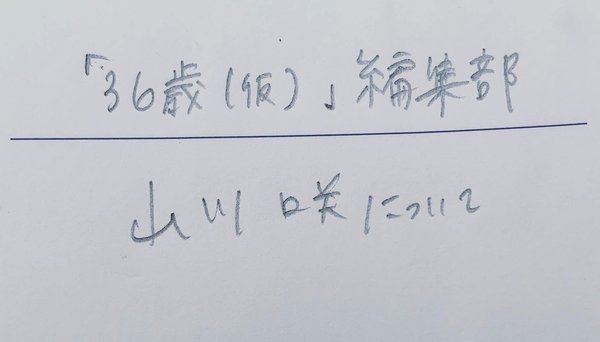 「36歳(仮)」編集部
山川 咲について